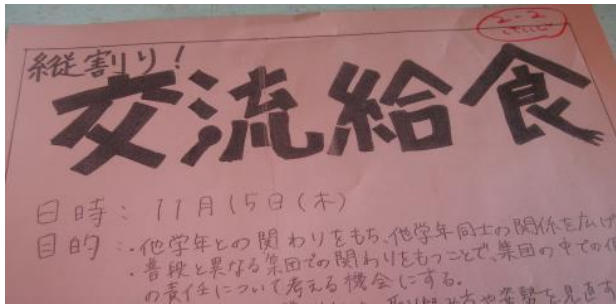 2-2
縦割り!
交流給食
日時: 11月15日(木)
目的:・他学年との関わりをもち、他学年同士の関係を広げ
・普段と異なる集団での関わりをもつことで、集団の中での個
の責任について考える機会にする。
を見直す